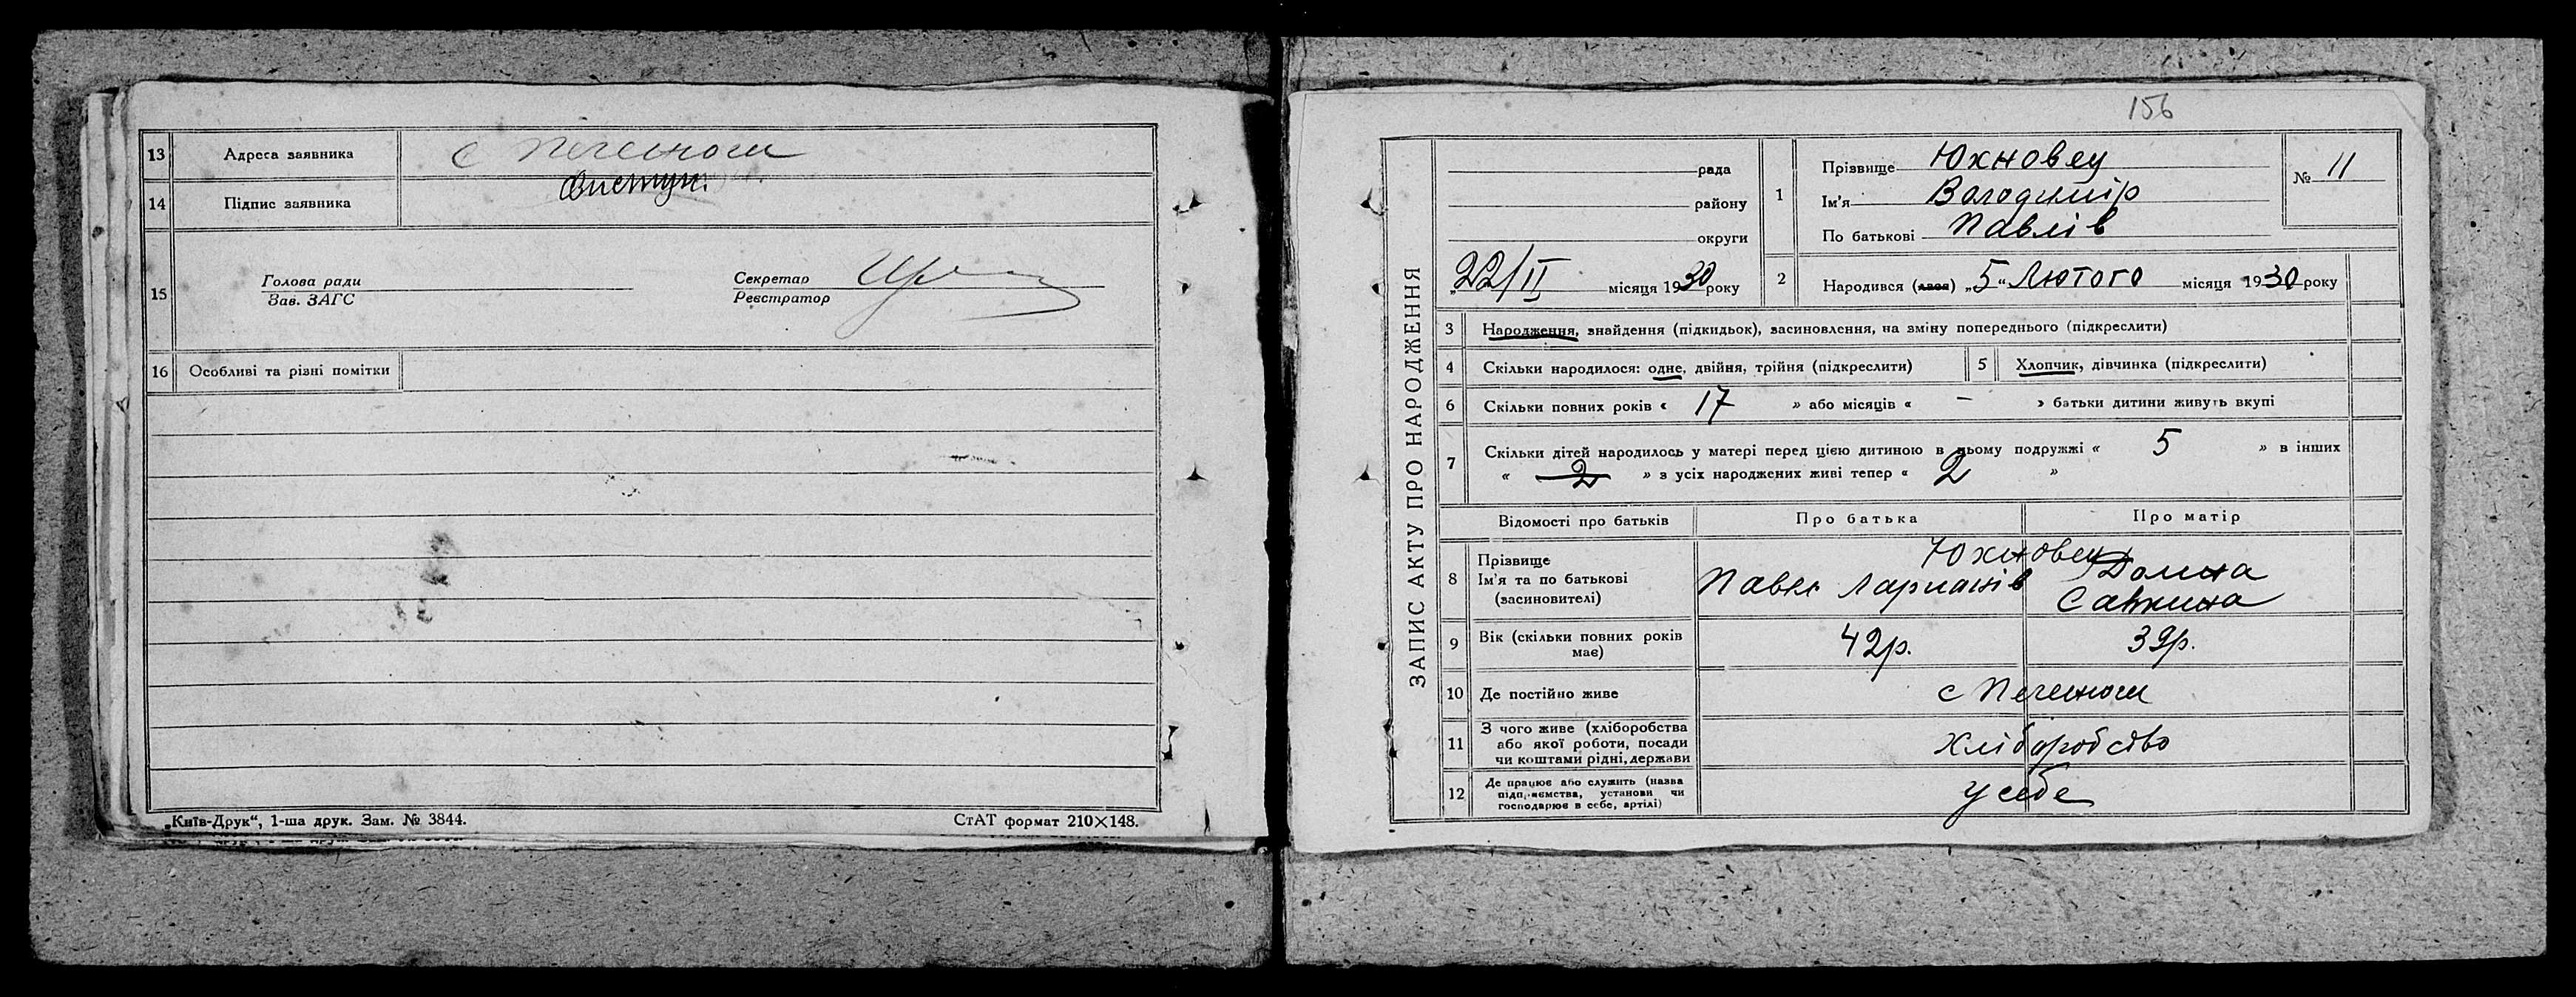 13 Адреса заявника с Печенюги
14 Підпис заявника
15 Голова ради
Зав. ЗАГС
Секретар
Реєстратор
16 Особливі та різні помітки
„Київ-Друк“, 1-ша друк. Зам. № 3844.
СтАТ формат 210×148.
156
ЗАПИС АКТУ ПРО НАРОДЖЕННЯ
рада
району
округи
„22/II місяця 1930 року
1 Прізвище Юхновец
Ім'я Володимір
По батькові Павлів
№ 11
2 Народився (лася) „5“ Лютого місяця 1930 року
3 Народження, знайдення (підкидьок), засиновлення, на зміну попереднього (підкреслити)
4 Скільки народилося: одне, двійня, трійня (підкреслити)
5 Хлопчик, дівчинка (підкреслити)
6 Скільки повних років « 17 » або місяців « – » батьки дитини живуть вкупі
7 Скільки дітей народилось у матері перед цією дитиною в цьому подружжі « 5 » в інших
« 2 » з усіх народжених живі тепер « 2 »
Відомості про батьків Про батька Про матір
8 Прізвище
Ім'я та по батькові
(засиновителі)
Юхновец
Павло
Домна
Савкина
9 Вік (скільки повних років
має)
42р. 39р.
10 Де постійно живе с Печенюги
11 З чого живе (хліборобства
або якої роботи, посади
чи коштами рідні, держави
хліборобство
12 Де працює або служить (назва
підприємства, установи чи
господарює в себе, артілі)
у себе